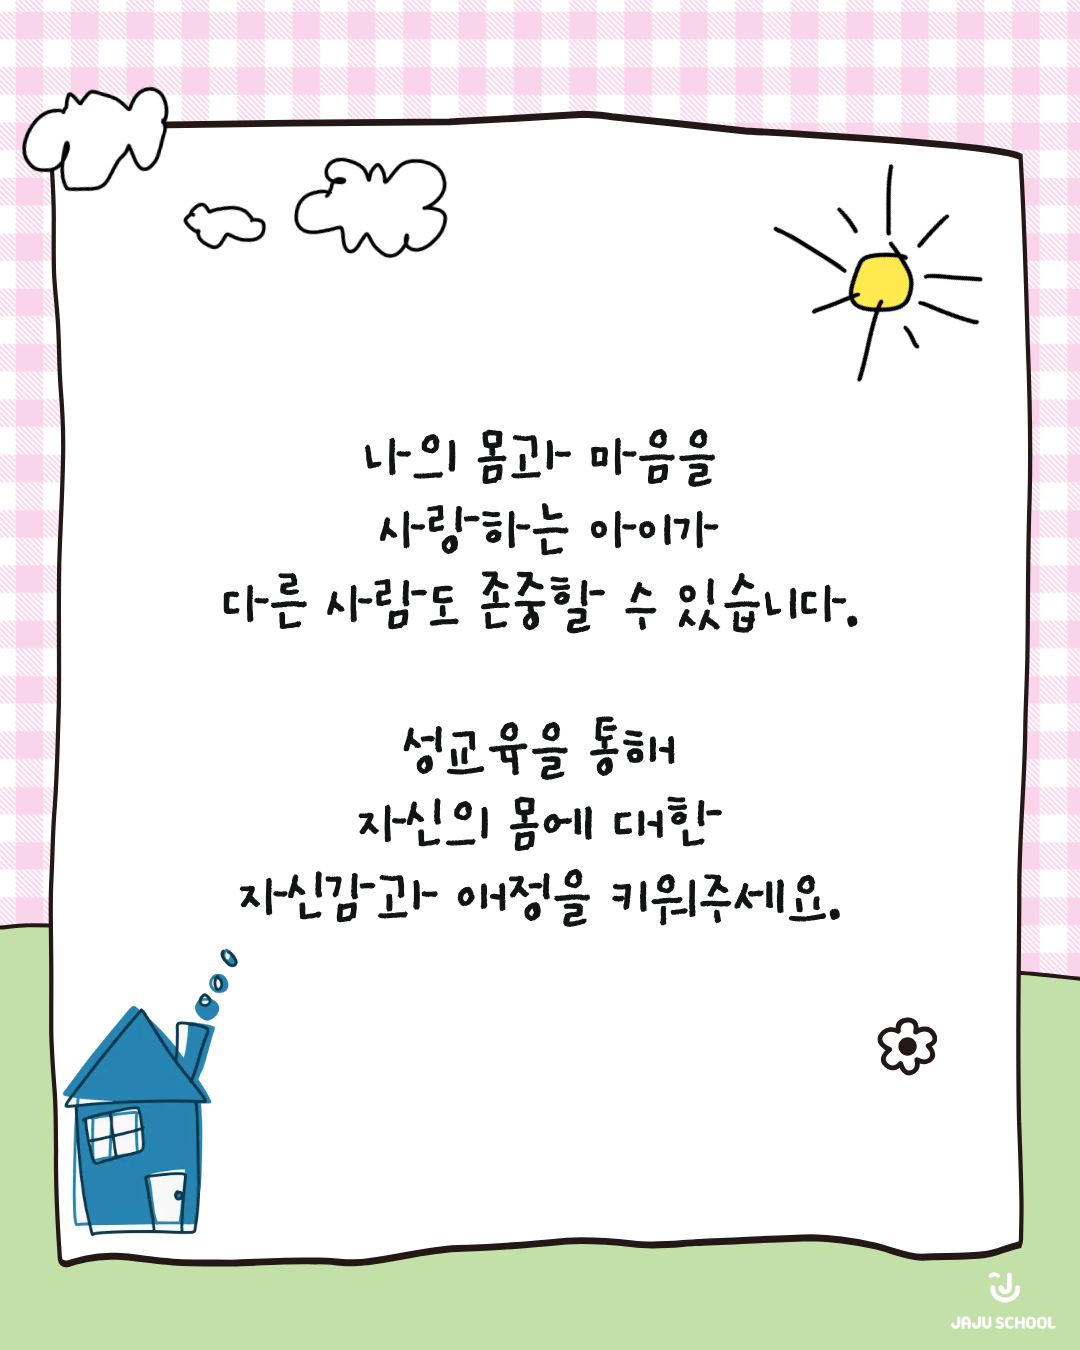 나의 몸과 마음을
사랑하는 아이가
다른 사람도 존중할 수 있습니다.
성교육을 통해
자신의 몸에 대한
자신감과 애정을 키워주세요.
JAJU SCHOOL